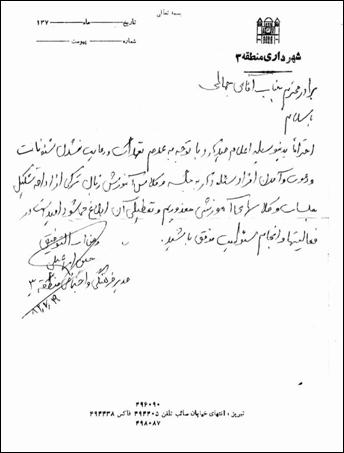 بسمه تعالی
تاریخ ماه ۱۳۷
شماره پیوست
شهرداری منطقه ۳
برادر محترم جناب آقای جمالی
با سلام
احتراماً بدینوسیله اعلام میدارد با توجه به عدم تعهدات و رعایت نشدن شئونات
و دعوت و آمدن افراد به جلسه و کلاس آموزش زبان ترکی از ادامه تشکیل
جلسات و کلاسهای آموزشی معذوریم و تعطیلی آن ابلاغ میشود امید است در
فعالیتها و انجام مسئولیت موفق باشید.
و من الله التوفیق
مدیر فرهنگی و اجتماعی منطقه ۳
۴۹۶۰۹۰
تبریز، انتهای خیابان صائب تلفن ۴۹۴۴۰۵ فاکس ۴۹۴۴۳۸
۴۹۸۰۸۷